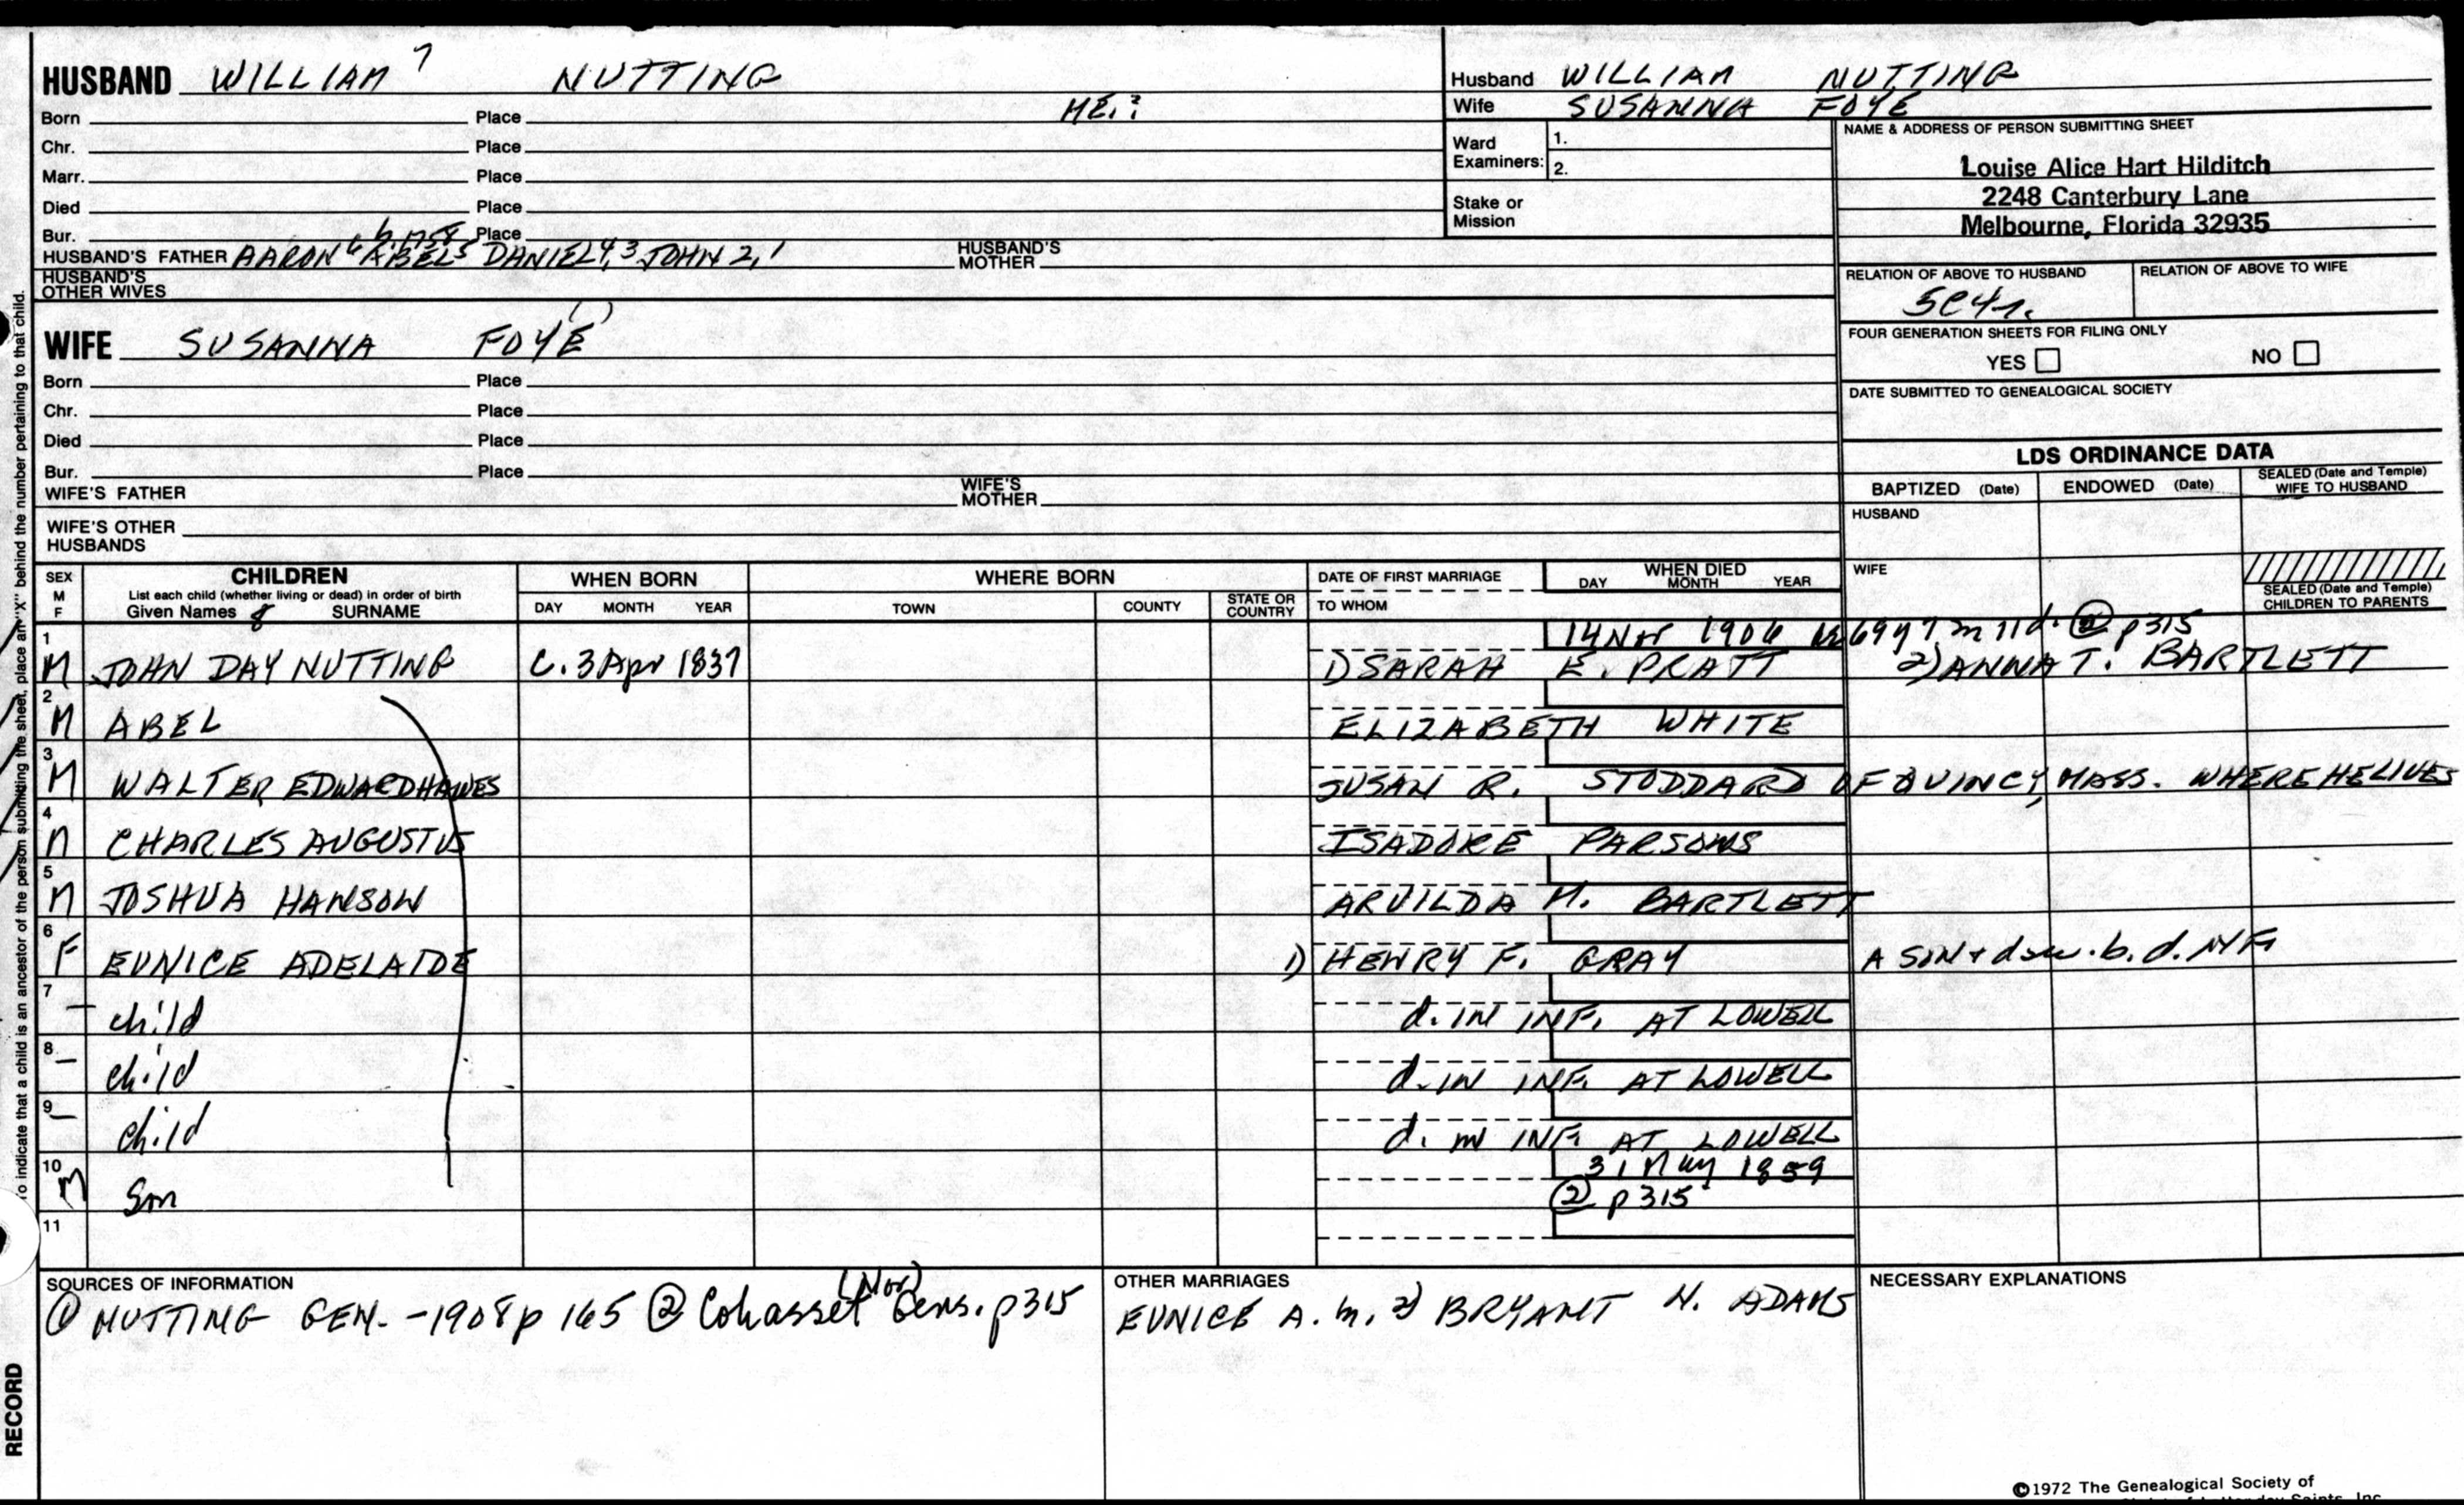 HUSBAND WILLIAM 7 NUTTING
Born Place ME.?
Chr. Place
Marr. Place
Died Place
Bur. Place
b. 1758
HUSBAND'S FATHER AARON 6 ABEL 5 DANIEL 4,3 JOHN 2,1 HUSBAND'S MOTHER
HUSBAND'S OTHER WIVES
Husband WILLIAM NUTTING
Wife SUSANNA FOYE
Ward Examiners: 1.
2.
Stake or Mission
NAME & ADDRESS OF PERSON SUBMITTING SHEET
Louise Alice Hart Hilditch
2248 Canterbury Lane
Melbourne, Florida 32935
RELATION OF ABOVE TO HUSBAND RELATION OF ABOVE TO WIFE
5C4r.
FOUR GENERATION SHEETS FOR FILING ONLY
YES NO
DATE SUBMITTED TO GENEALOGICAL SOCIETY
WIFE SUSANNA FOYE ( )
Born Place
Chr. Place
Died Place
Bur. Place
WIFE'S FATHER WIFE'S MOTHER
WIFE'S OTHER HUSBANDS
LDS ORDINANCE DATA
BAPTIZED (Date) ENDOWED (Date) SEALED (Date and Temple) WIFE TO HUSBAND
HUSBAND
WIFE
SEALED (Date and Temple) CHILDREN TO PARENTS
SEX M F
CHILDREN
List each child (whether living or dead) in order of birth
Given Names 8 SURNAME
WHEN BORN
DAY MONTH YEAR
WHERE BORN
TOWN COUNTY STATE OR COUNTRY
DATE OF FIRST MARRIAGE
TO WHOM
WHEN DIED
DAY MONTH YEAR
1 14 Nov 1906 ae 69y 7m 11d. ② p315
M JOHN DAY NUTTING C. 3 Apr 1837 1) SARAH E. PRATT 2) ANNA T. BARTLETT
2
M ABEL ELIZABETH WHITE
3
M WALTER EDWARD HAWES SUSAN R. STODDARD OF QUINCY, MASS. WHERE HE LIVES
4
M CHARLES AUGUSTUS ISADORE PARSONS
5
M JOSHUA HANSON ARVILDA M. BARTLETT
6
F EUNICE ADELAIDE 1) HENRY F. GRAY A SON & dau. b. d. NF
7
— child d. IN INF. AT LOWELL
8
— child d. IN INF. AT LOWELL
9
— child d. in INF. AT LOWELL
10 31 May 1859
M Son ② p315
11
SOURCES OF INFORMATION
① NUTTING GEN. - 1908 p 165 ② Cohasset (Nor) Gens. p315
OTHER MARRIAGES
EUNICE A. m. 2) BRYANT N. ADAMS
NECESSARY EXPLANATIONS
To indicate that a child is an ancestor of the person submitting the sheet, place an "X" behind the number pertaining to that child.
RECORD
©1972 The Genealogical Society of